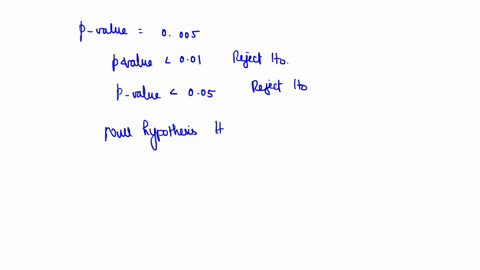 p-value = 0.005
p-value < 0.01 Reject H0.
p-value < 0.05 Reject H0
Null hypothesis H